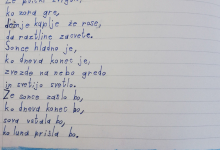 ko zora gre,
dežnje kaplje že rose,
da rastline zacvete.
Sonce hladno je,
ko dneva konec je,
zvezde na nebo gredo
in svetijo svetlo.
Že sonce zašlo bo,
ko dneva konec bo,
sova vstala bo,
ko luna prišla bo.